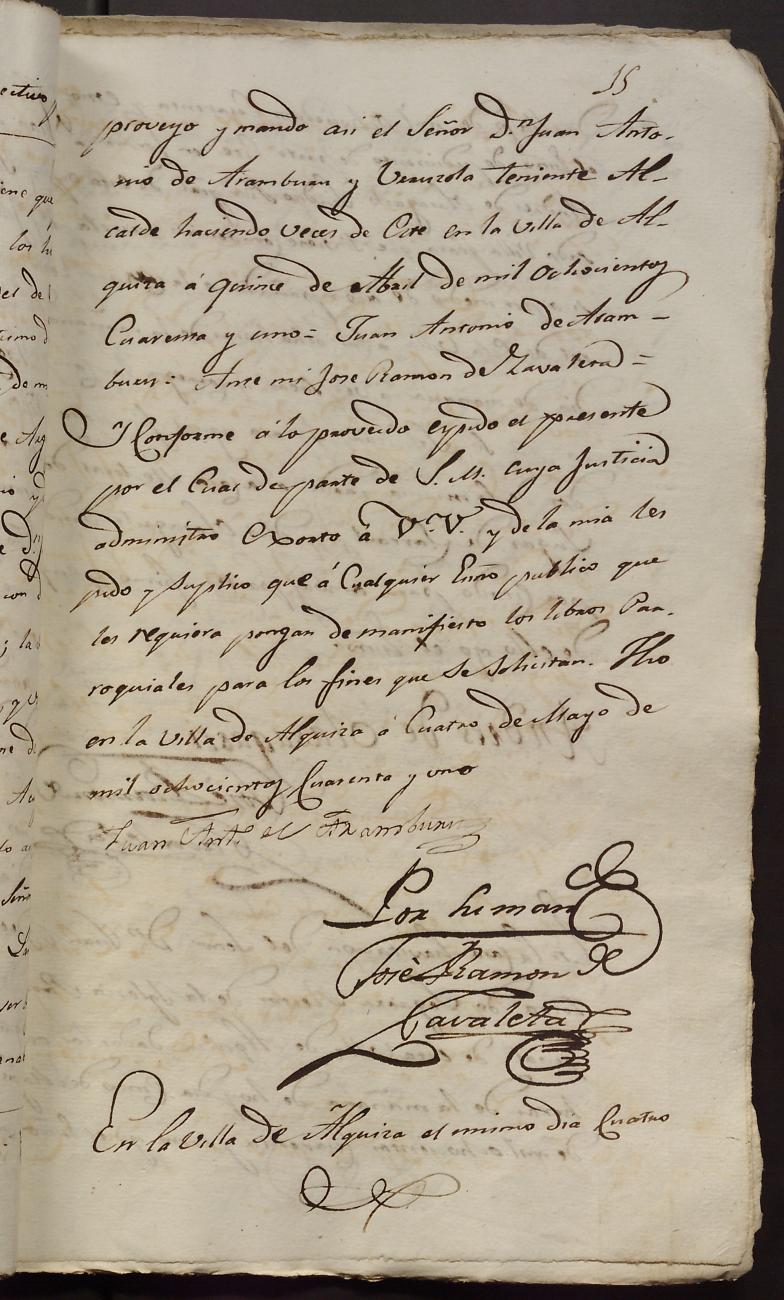 15
proveyo y mando asi el Señor D.n Juan Anto-
nio de Aramburu y Veuizola teniente Al-
calde haciendo veces de Este en la villa de Al-
quiza á quince de Abril de mil ochocientos
Cuarenta y uno = Juan Antonio de Aram-
buru = Ante mi Jose Ramon de Zavaleta =
Y Conforme á lo proveido espido el presente
por el Cual de parte de S. M. cuya Justicia
administro Exorto á V.V. y de la mia les
pido y suplico que á Cualquier Esno publico que
les requiera pongan de manifiesto los libros Par-
roquiales para los fines que se solicitan. Fho
en la villa de Alquiza á Cuatro de Mayo de
mil ochocientos Cuarenta y uno
Juan Ant.o de Aramburu
Por su man.do
José Ramon de
Zavaleta
En la villa de Alquiza el mimo dia Cuatro